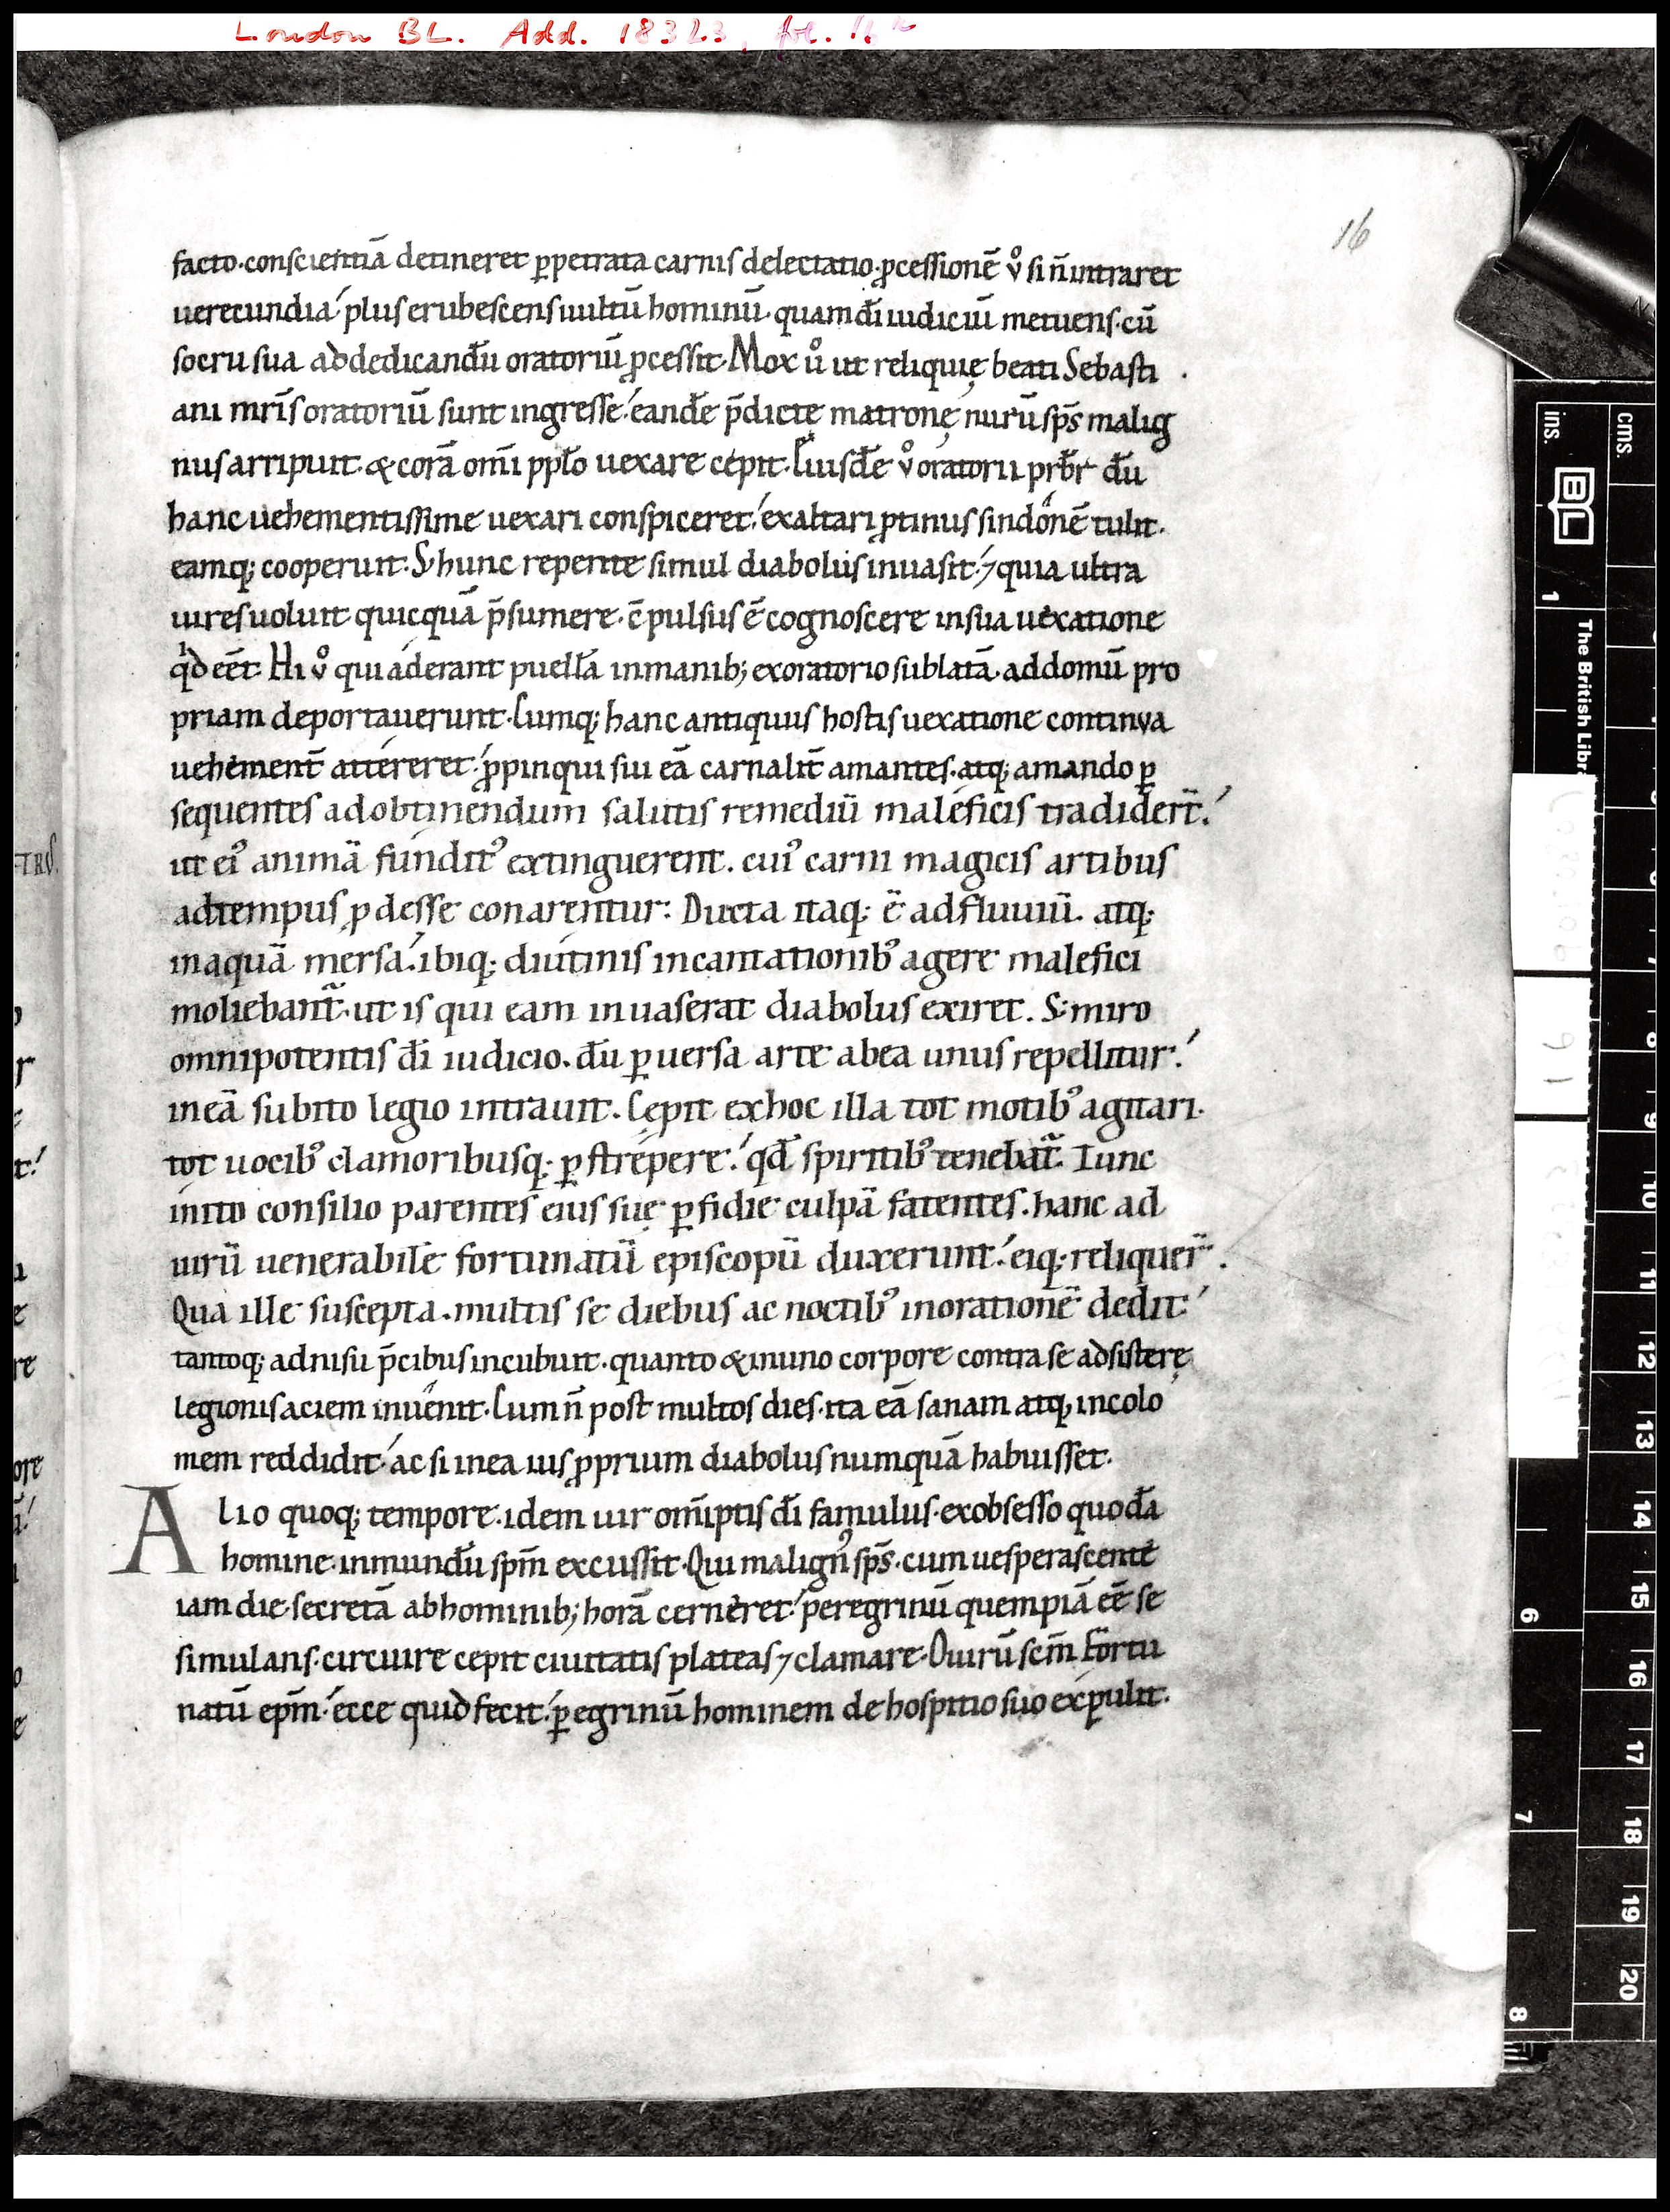 London BL. Add. 18323, fol. 16r
16
facto·conscientiā detineret ꝑpetrata carnis delectatio·ꝓcessionē ủ si n̄ intraret
uerecundia plus erubescens uultū hominū·quam dī iudiciū metuens·cū
socru sua ad dedicandū oratoriū ꝓcessit·Mox ủ ut reliquię beati Sebasti
ani mr̄is oratoriū sunt ingresse eandē p̄dictę matronę nurū sp̄s malig
nus arripuit·& corā om̄i pplo uexare cepit·Eiusdē ủ oratorii prb̄r dū
hanc uehementissime uexari conspiceret exaltari ꝓtinus sindonē tulit.
eamq; cooperuit·S; hunc repente simul diabolus inuasit·⁊ quia ultra
uires uoluit quicquā p̄sumere·c̄pulsus ē cognoscere in sua uexatione
qđ eēt·Hi ủ qui aderant puellā in manib; ex oratorio sublatā·ad domū pro
priam deportauerunt·Cumq; hanc antiquus hostis uexatione continva
uehement̄ attereret ꝓpinqui sui eā carnalit̄ amantes·atq; amando ꝑ
sequentes ad obtinendum salutis remediū maleficis tradider̄t
ut ei᾿ animā fundit᾿ extinguerent. cui᾿ carni magicis artibus
ad tempus ꝓdesse conarentur: Ducta itaq; ē ad fluuiū. atq;
in aquā mersa·ibiq; diutinis incantationib᾿ agere malefici
moliebant̄·ut is qui eam inuaserat diabolus exiret. S; miro
omnipotentis dī iudicio. dū ꝑuersa arte ab ea unus repellitur
in eā subito legio intrauit. Cepit ex hoc illa tot motib᾿ agitari·
tot uocib᾿ clamoribusq; ꝑstrepere qđ spiritib᾿ tenebat̄. Tunc
inito consilio parentes eius suę ꝑfidie culpā fatentes. hanc ad
uirū uenerabilē fortunatū episcopū duxerunt eiq; reliquer̄.
Qua ille suscepta. multis se diebus ac noctib᾿ in orationē dedit
tantoq; adnisu p̄cibus incubuit·quanto & in uno corpore contra se adsistere
legionis aciem inuenit·Cum n̄ post multos dies·ita eā sanam atq; incolo
mem reddidit ac si in ea ius ꝓprium diabolus numquā habuisset.
Alio quoq; tempore·idem uir om̄iptis dī famulus·ex obsesso quodā
homine·inmundū spm̄ excussit·Qui malign᾿ sp̄s·cum uesperascente
iam die·secretā ab hominib; horā cerneret peregrinū quempiā eē se
simulans·circuire cepit ciuitatis plateas ⁊ clamare·O uirū scm̄ fortu
natū epm̄ ecce quid fecit ꝑegrinū hominem de hospitio suo expulit.
ins.
cms.
BL
The British Libr
1
6
7
8
8
9
10
11
12
13
14
15
16
17
18
19
20